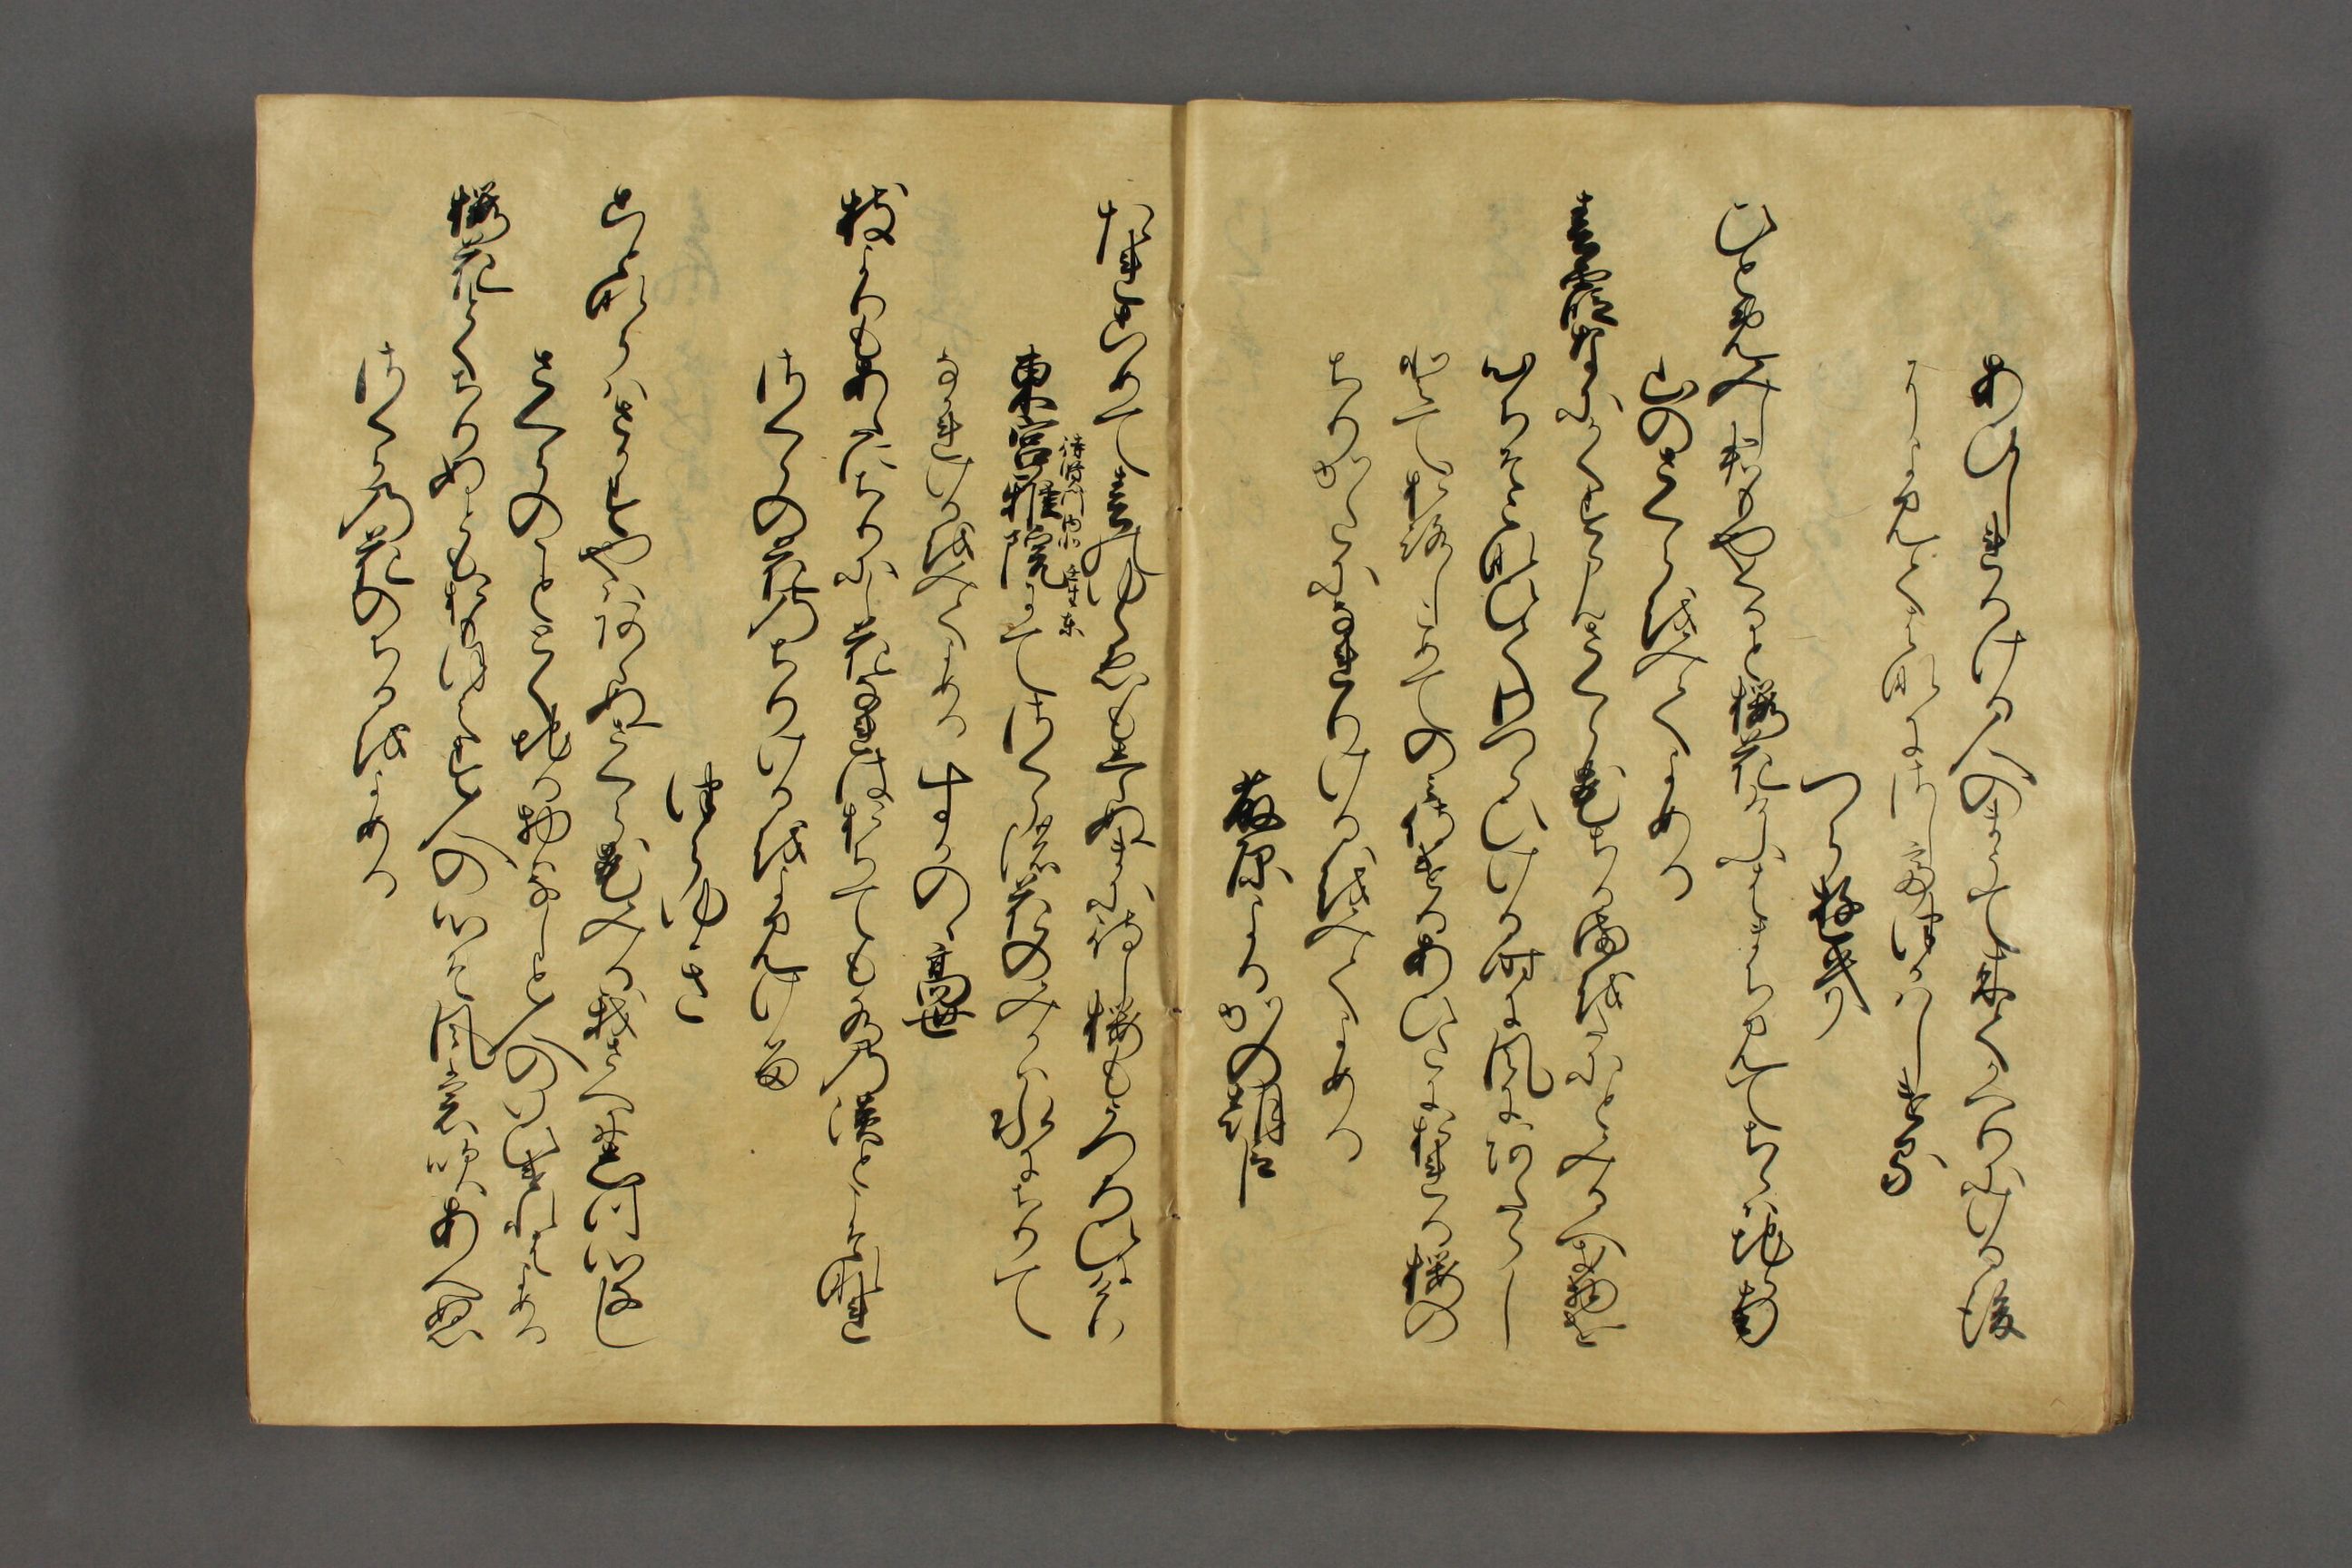 あひしれりける人のまうて来てかへりにける後
によみて花にさしてつかはしける
つらゆき
ひとめみし君もやくると桜花けふはまちみてちらはちらなん
山のさくらをみてよめる
春霞なにかくすらんさくら花ちるまをたにもみるへき物を
心ちそこなひてわつらひける時に風にあたらし
とておろしこめてのみ侍けるあひたにおれる桜の
ちりかたになれりけるをみてよめる
藤原よるかの朝臣
たれこめて春のゆくゑもしらぬまに待し桜もうつろひにけり
東宮雅院にてさくらの花のみかは水にちりて
待賢門内
なかれけるをみてよめる すかのゝ高世
枝よりもあたにちりにし花なれはおちても水の淡とこそなれ
さくらの花のちりけるをよみける
つらゆき
ことならはさかすやはあらぬさくら花みる我さへにしつ心なし
さくらのことゝくちる物はなしと人のいひけれはよめる
桜花とくちりぬともおもほえす人の心そ風も吹あへぬ
さくらの花のちるをよめる